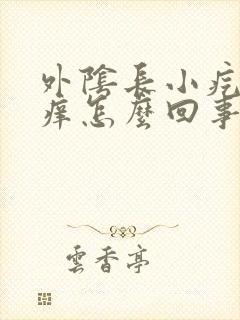 外陰長小疙
癢怎麼回事
雲香亭